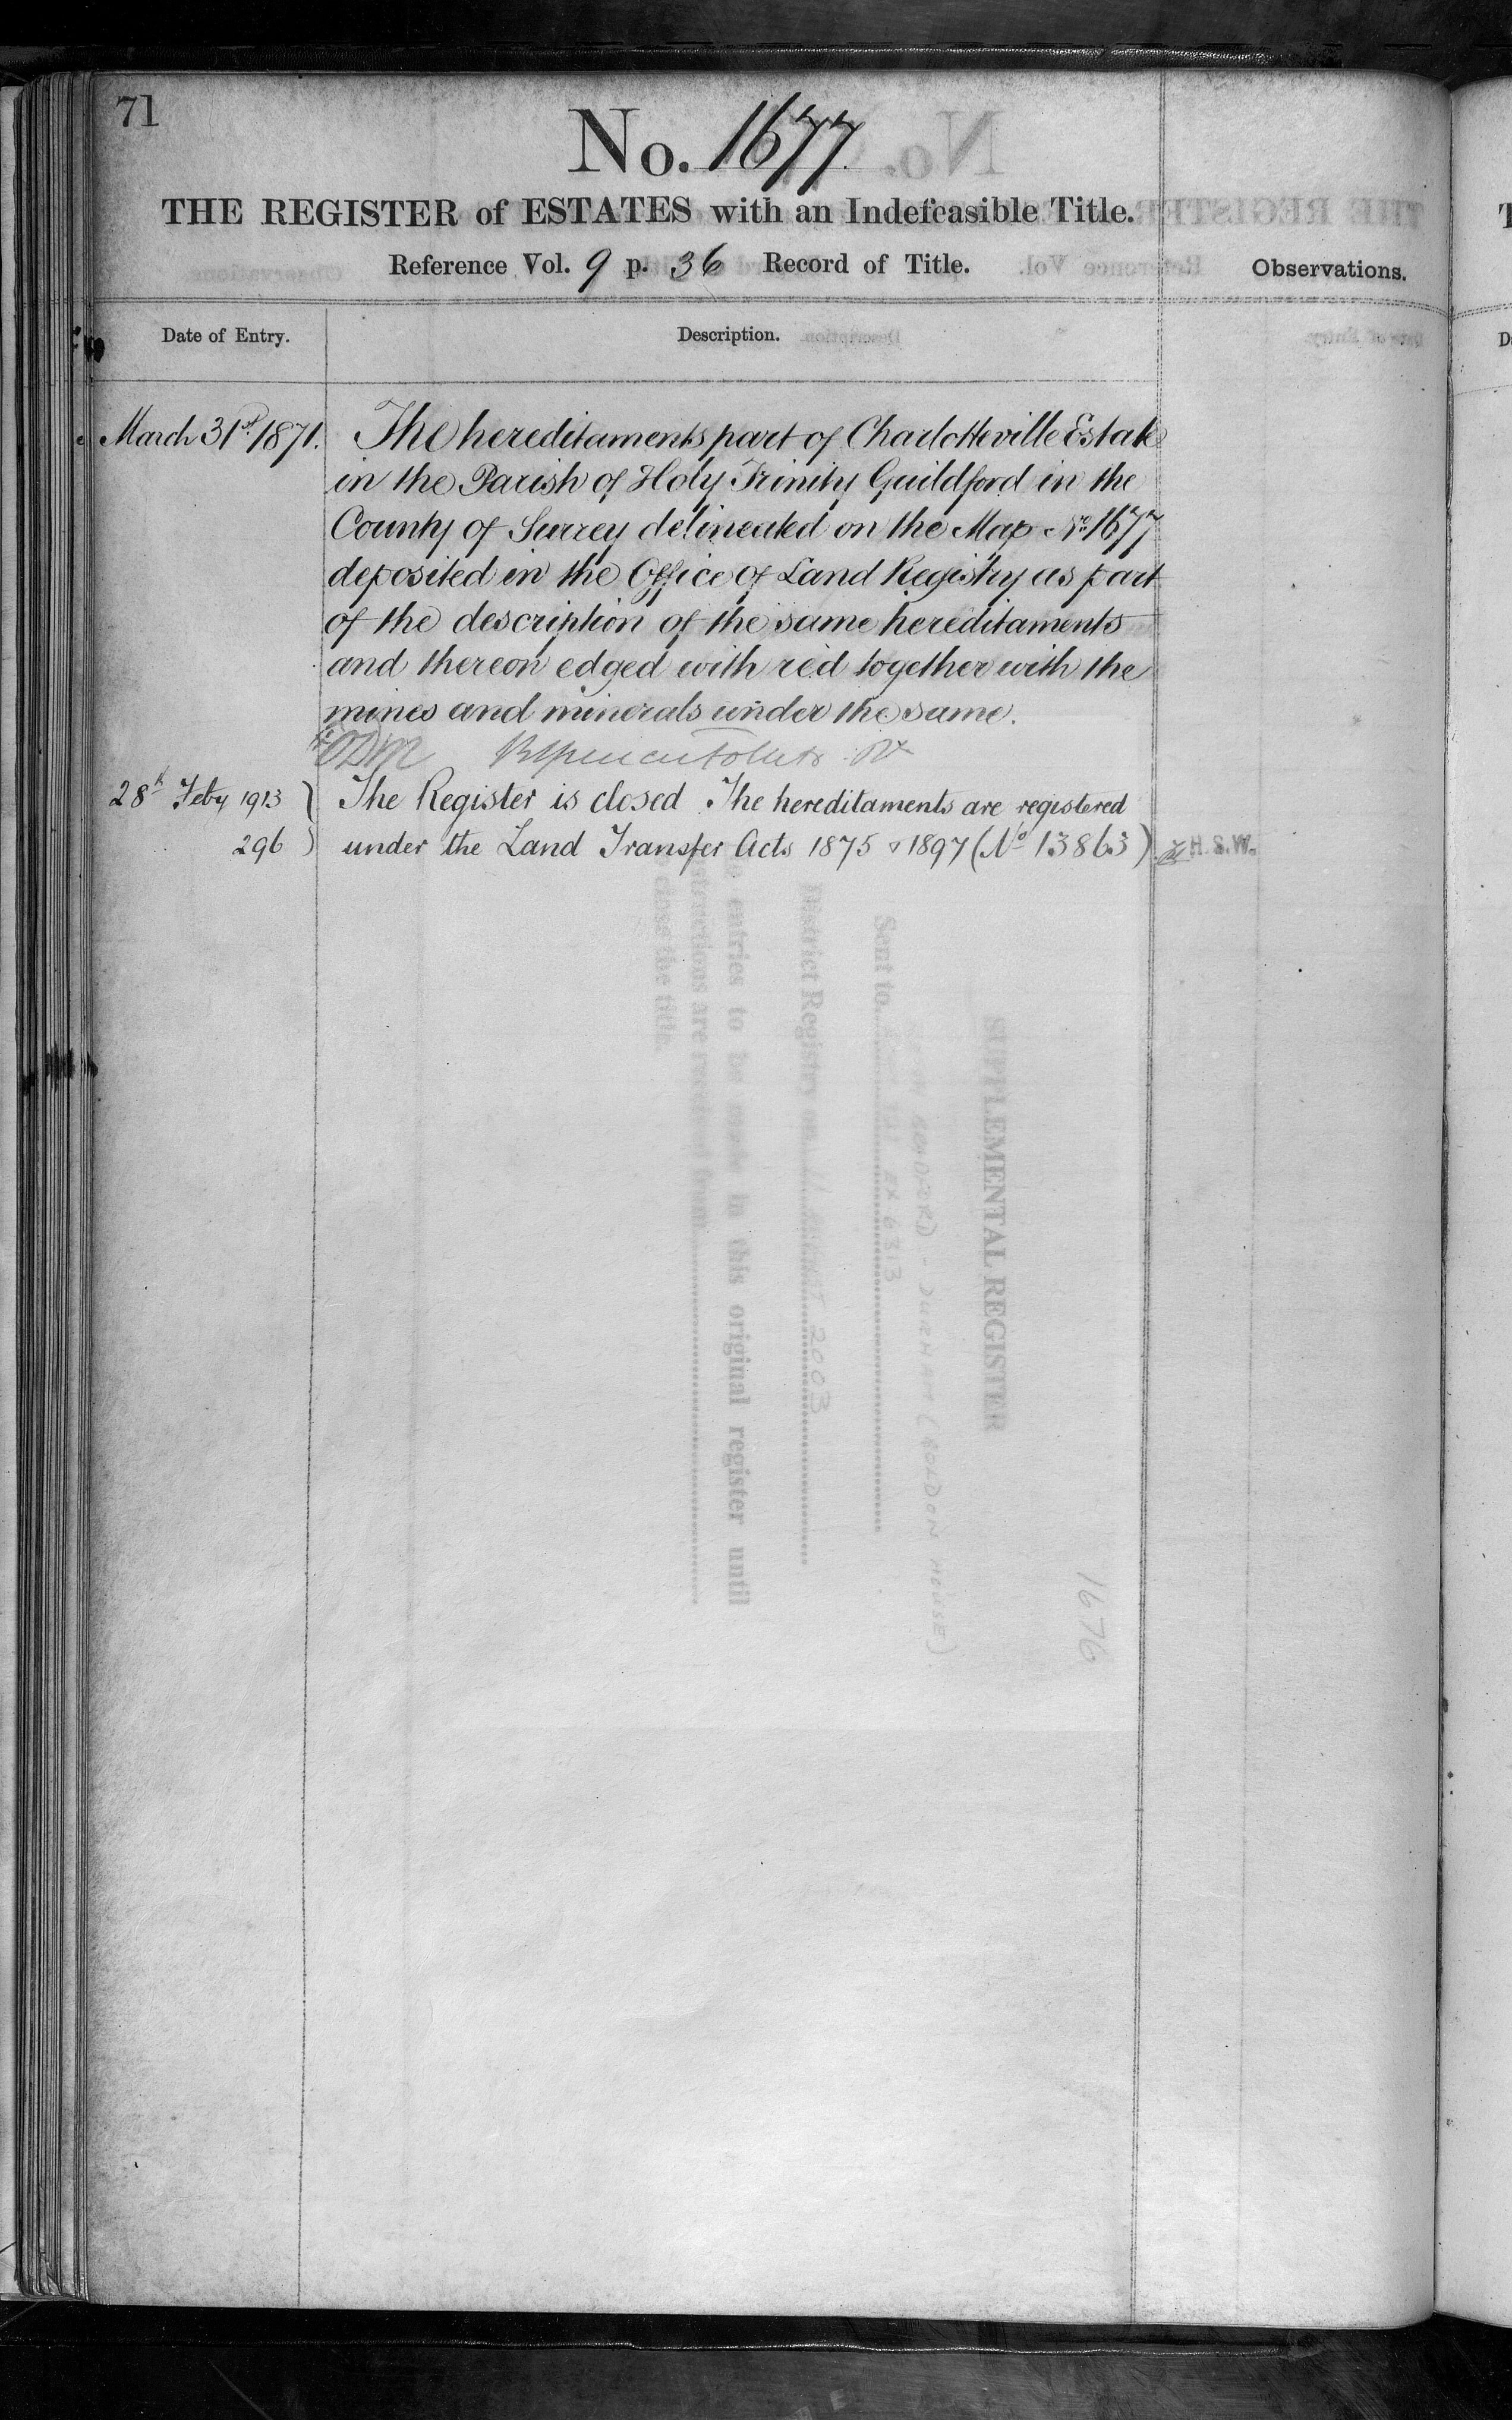 71
No. 1677.
THE REGISTER of ESTATES with an Indefeasible Title.
Reference Vol. 9 p. 36 Record of Title.
Observations.
Date of Entry.
Description.
March 31st 1871.
The hereditaments part of Charlotteville Estate
in the Parish of Holy Trinity Guildford in the
County of Surrey delineated on the Map No. 1677
deposited in the Office of Land Registry as part
of the description of the same hereditaments
and thereon edged with red together with the
mines and minerals under the same.
28th Feby 1913
296
The Register is closed. The hereditaments are registered
under the Land Transfer Acts 1875 & 1897 (No 13863)
H.S.W.
SUPPLEMENTAL REGISTER
Sent to
District Registry on 2003
entries to be made in this original register until
instructions are received from
close the title.
1676